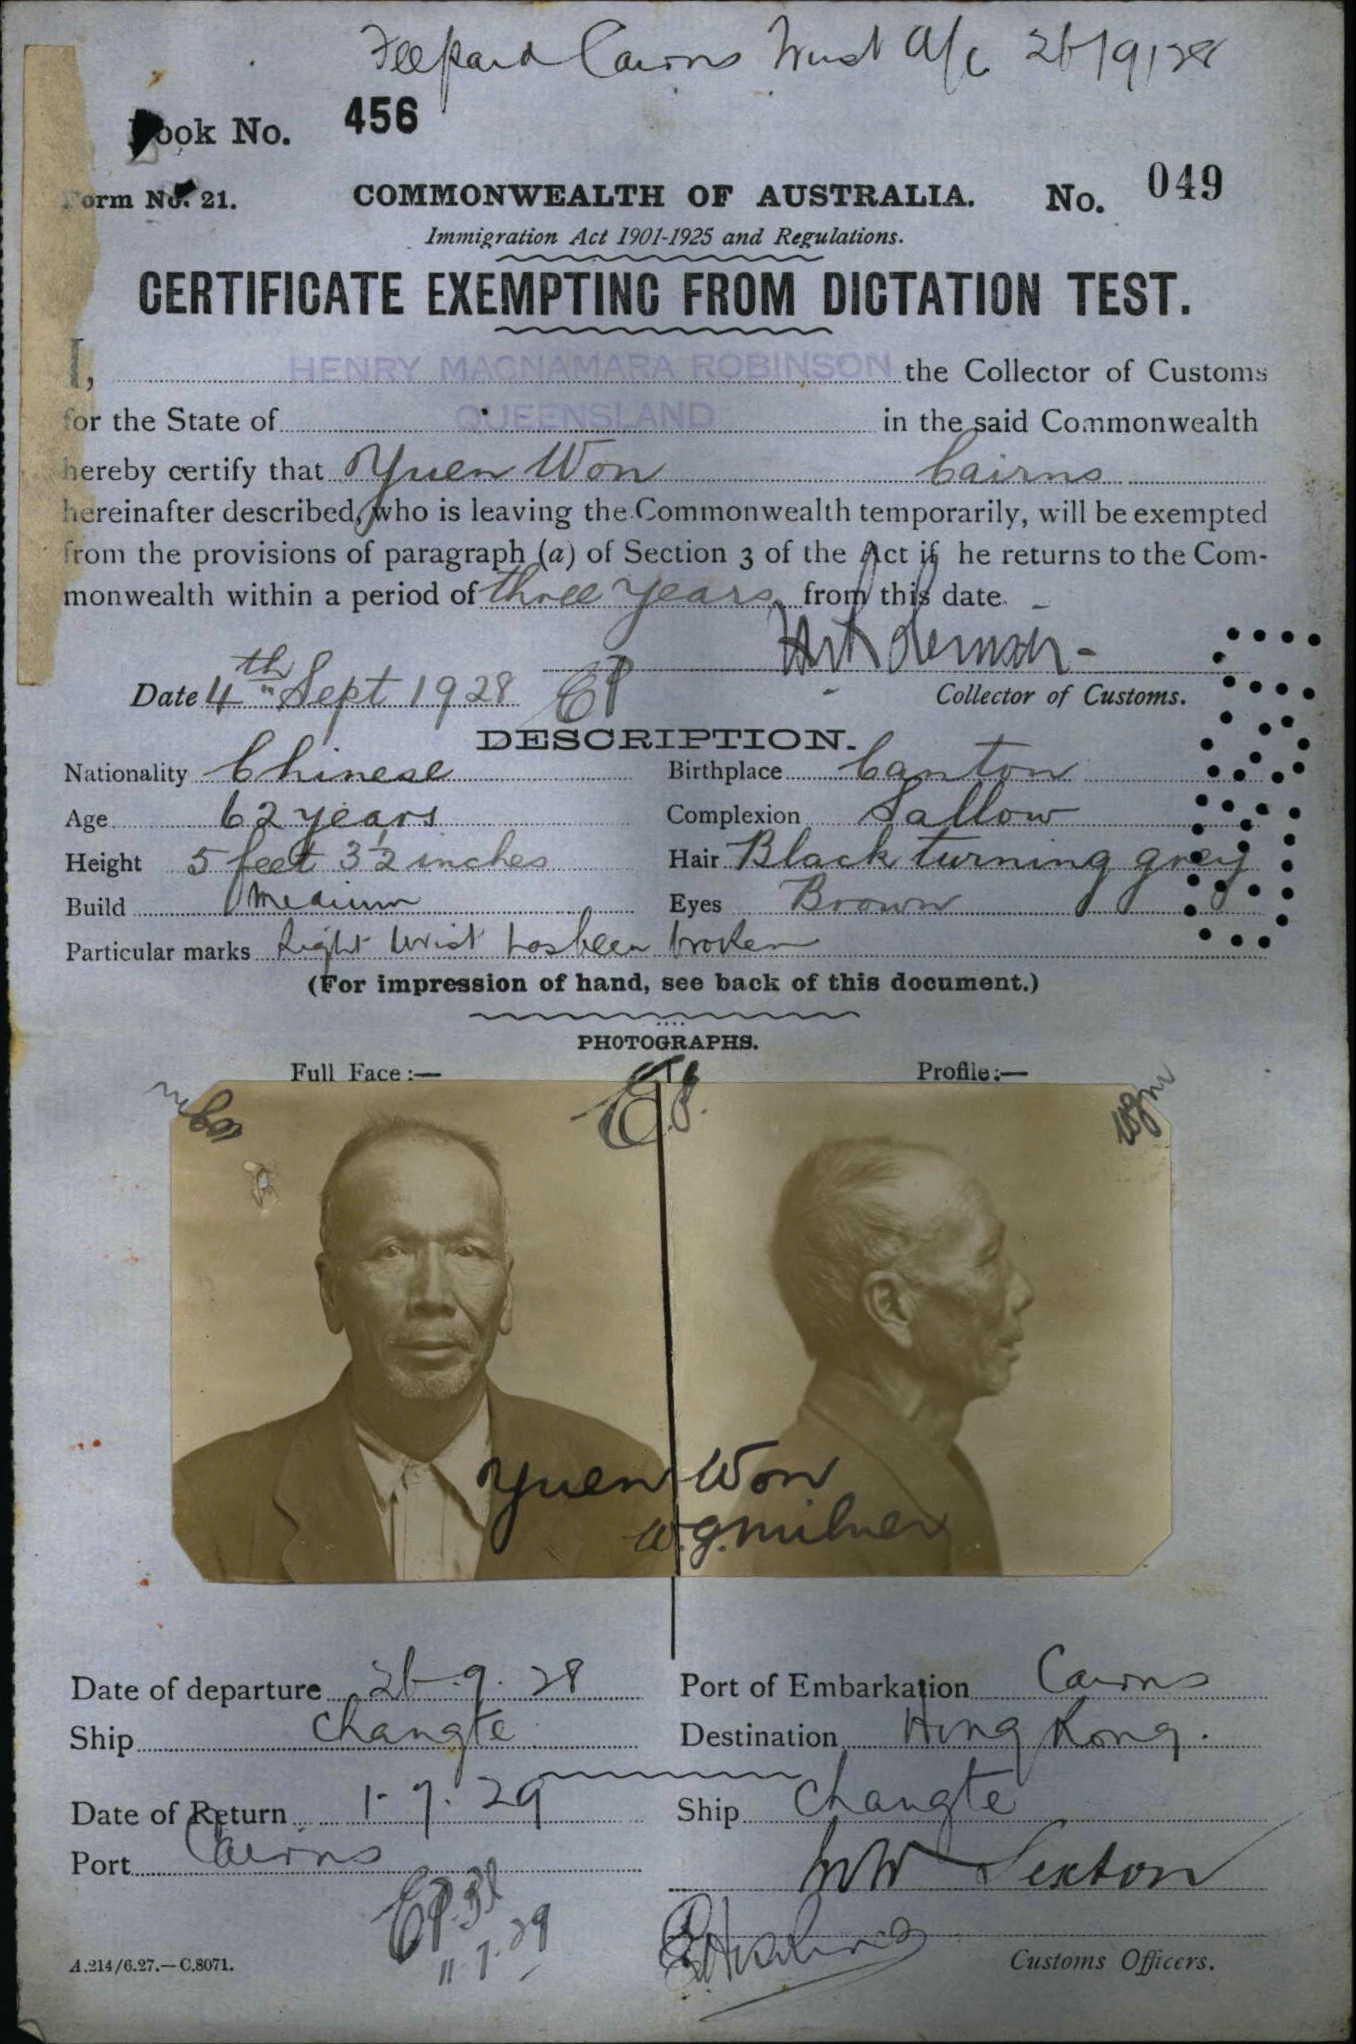 Fee paid Cairns Trust A/c 26/9/28
Book No. 456
Form No. 21. COMMONWEALTH OF AUSTRALIA. No. 049
Immigration Act 1901-1925 and Regulations.
CERTIFICATE EXEMPTING FROM DICTATION TEST.
I, HENRY MACNAMARA ROBINSON the Collector of Customs
for the State of QUEENSLAND in the said Commonwealth
hereby certify that Yuen Won Cairns
hereinafter described, who is leaving the Commonwealth temporarily, will be exempted
from the provisions of paragraph (a) of Section 3 of the Act if he returns to the Com-
monwealth within a period of three years from this date.
Date 4th Sept 1928 EP Collector of Customs.
DESCRIPTION.
Nationality Chinese Birthplace Canton
Age 62 years Complexion Sallow
Height 5 feet 3½ inches Hair Black turning grey
Build Medium Eyes Brown
Particular marks Right wrist has been broken
(For impression of hand, see back of this document.)
PHOTOGRAPHS.
Full Face:— Profile:—
EP.
wgm
Yuen Won
W.G. Milner
Date of departure 26-9-28 Port of Embarkation Cairns
Ship Changte Destination Hong Kong.
Date of Return 1-7-29 Ship Changte
Port Cairns
Sexton
11-7-29
A.214/6.27.—C.8071. Customs Officers.